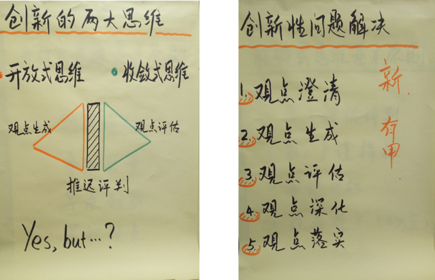 创新的两大思维
开放式思维
收敛式思维
观点生成
观点评估
推迟评判
Yes, but…?
创新性问题解决
新
有用
1. 观点澄清
2. 观点生成
3. 观点评估
4. 观点深化
5. 观点落实